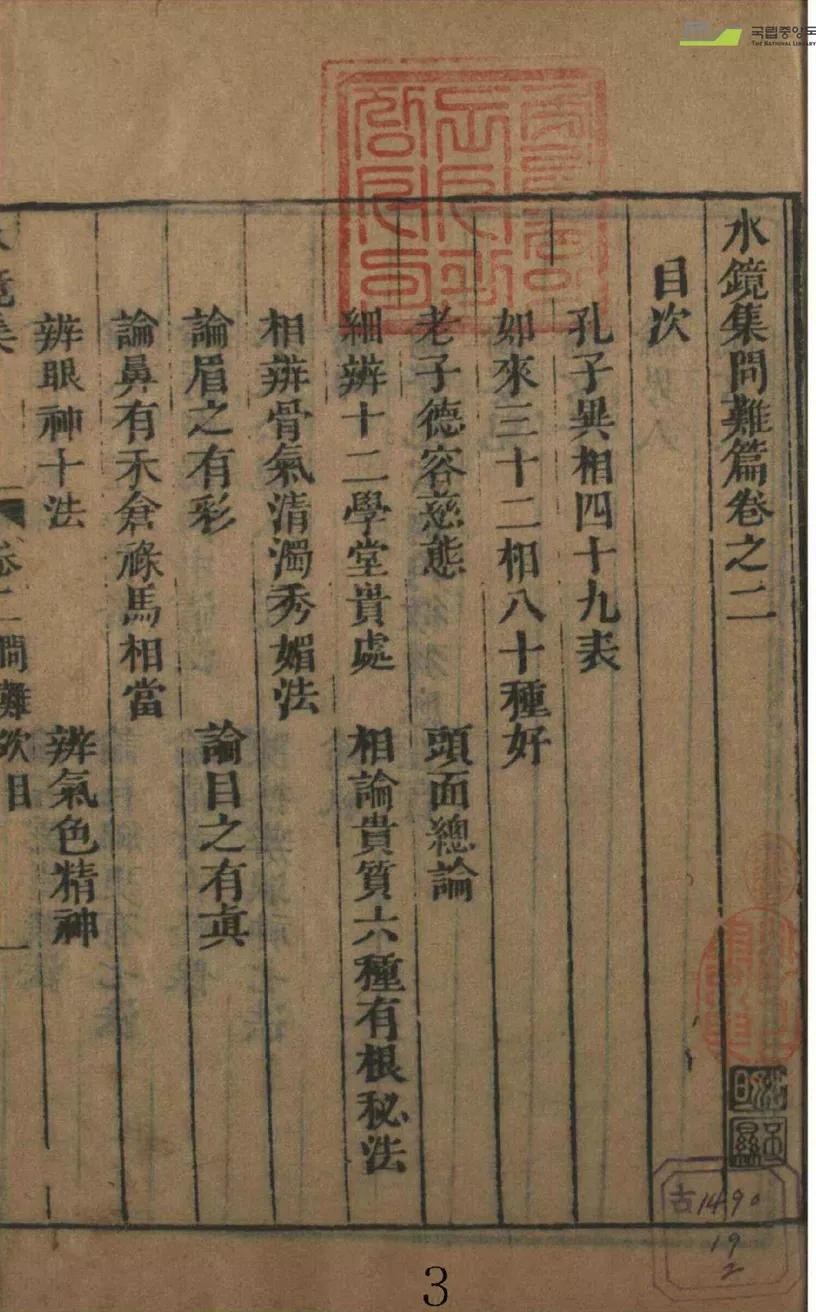 국립중앙도
THE NATIONAL LIBRARY
水鏡集問難篇卷之二
目次
孔子異相四十九表
如來三十二相八十種好
老子德容慈態 頭面總論
細辨十二學堂貴處 相論貴質六種有根秘法
相辨骨氣清濁秀媚法
論眉之有彩 論目之有眞
論鼻有禾倉祿馬相當
辨眼神十法 辨氣色精神
水鏡集 卷二問難 次目 一
古1490
19
2
3